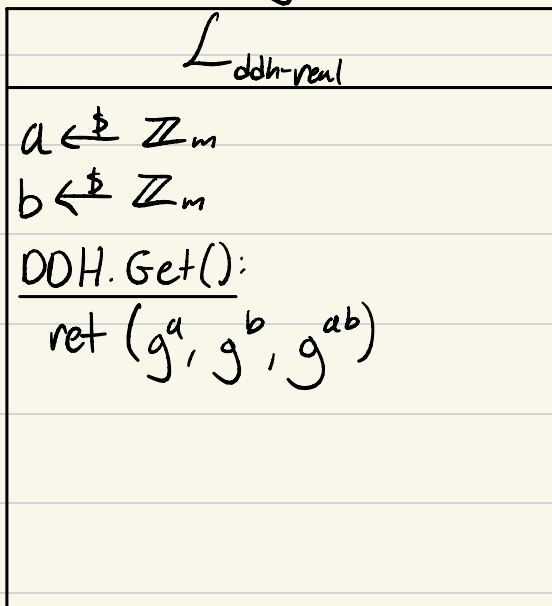 ℒ_ddh-real
a ←$ ℤ_m
b ←$ ℤ_m
DDH.Get():
ret (g^a, g^b, g^ab)